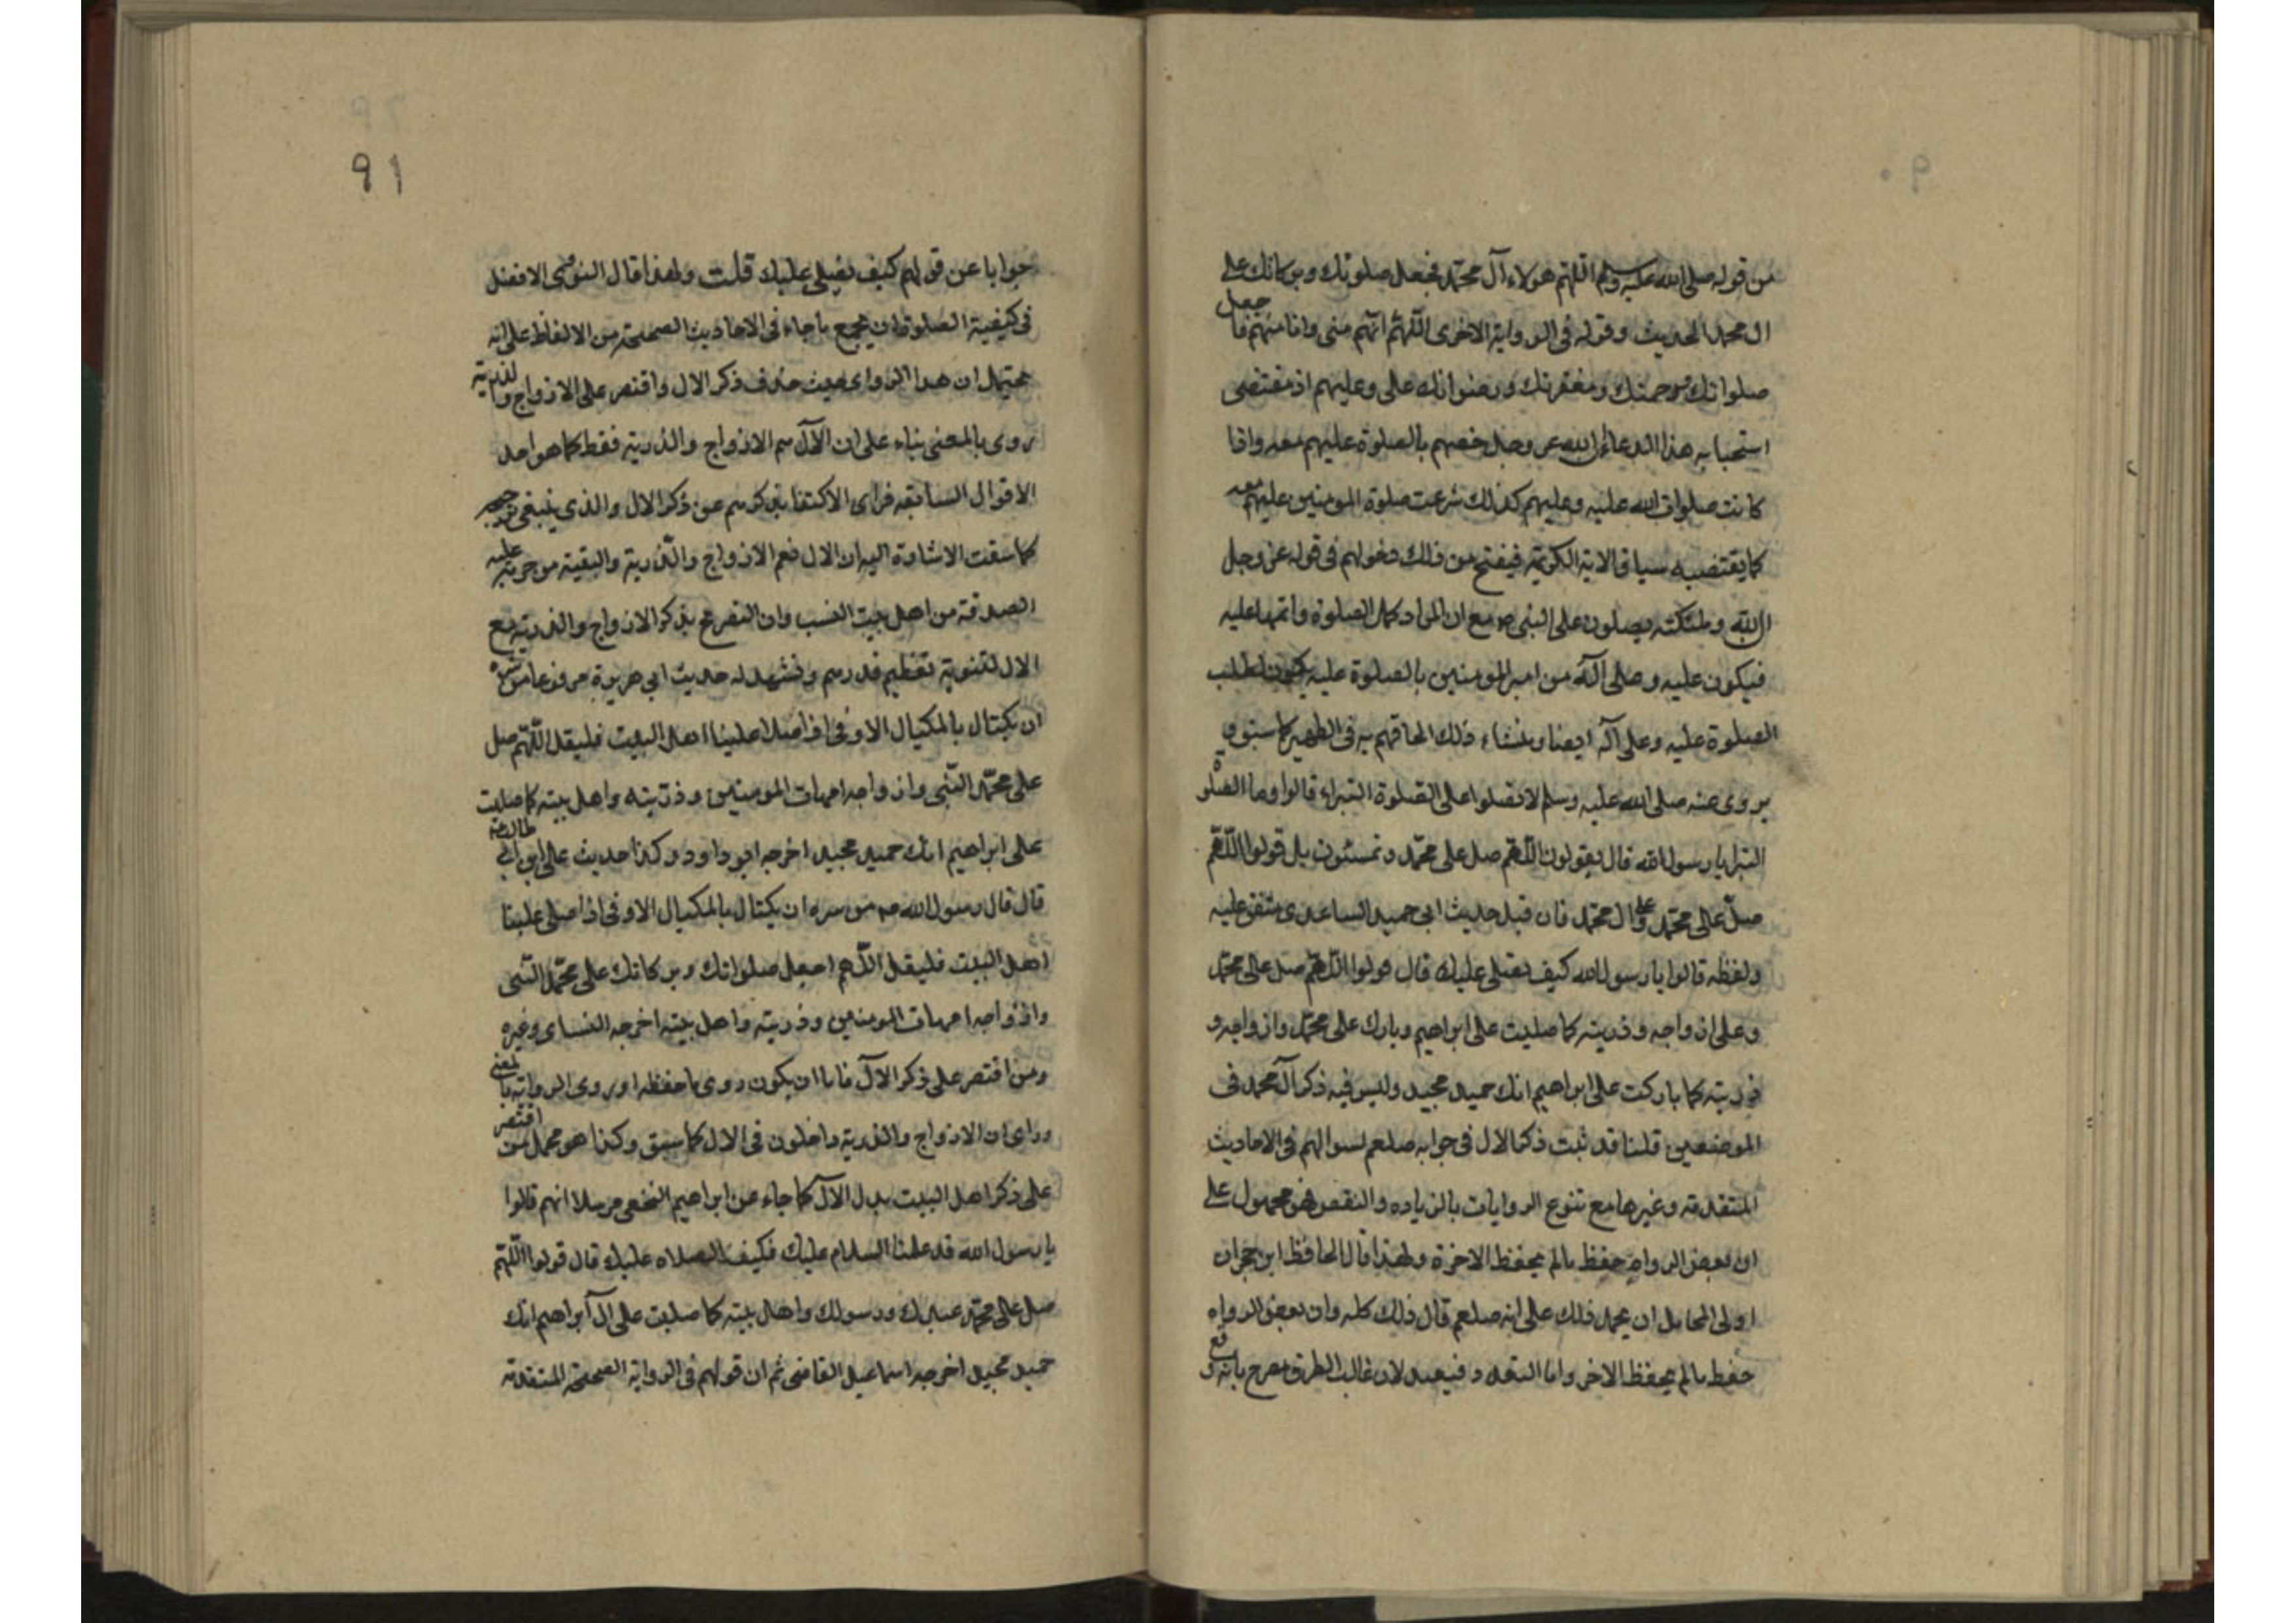 من قوله صلى الله عليه وسلم اللهم هولاء آل محمد فجعل صلوتك وبركاتك على
ال محمد الحديث وقوله فى الرواية الاخرى اللهم انهم منى وانا منهم فاجعل
صلواتك ورحمتك ومغفرتك ورضوانك على وعليهم اذ مقتضى
استحبابه هذا الدعاء ان الله عز وجل خصهم بالصلوة عليهم معه واذا
كانت صلوات الله عليه وعليهم كذلك شرعت صلوة المومنين عليهم معه
كما يقتضيه سياق الاية الكريمة فيفتح من ذلك دخولهم فى قوله عز وجل
ان الله وملئكته يصلون على النبى ص مع ان المراد كمال الصلوة واتمها عليه
فيكون عليه وعلى آله من امر المومنين بالصلوة عليه يكون لطلب
الصلوة عليه وعلى آله ايضا ومنشاء ذلك الحاقهم به فى الطهير كما سبق و
يروى عنه صلى الله عليه وسلم لا تصلوا على الصلوة البتراء قالوا وما الصلوة
البترا يا رسول الله قال تقولون اللهم صل على محمد وتمسكون بل قولوا اللهم
صل على محمد وعلى ال محمد فان قيل حديث ابى حميد الساعدى متفق عليه
ولفظه قالوا يا رسول الله كيف نصلى عليك قال قولوا اللهم صل على محمد
وعلى ازواجه وذريته كما صليت على ابراهيم وبارك على محمد وازواجه و
ذريته كما باركت على ابراهيم انك حميد مجيد وليس فيه ذكر آل محمد فى
الموضعين قلنا قد ثبت ذكر الال فى جوابه صلعم لسوالهم فى الاحاديث
المتقدمة وغيرها مع تنوع الروايات بالزياده والنقص فهو محمول على
ان بعض الرواة حفظ مالم يحفظ الاخرة ولهذا قال الحافظ ابن حجر ان
اولى المحامل ان يحمل ذلك على انه صلعم قال ذلك كله وان بعض الرواه
حفظ مالم يحفظ الاخر واما التعدد فبعيد لان غالب الطرق مصرح بانه وقع
91
جوابا عن قولهم كيف نصلى عليك قلت ولهذا قال النووى الافضل
فى كيفية الصلوة ان يجمع ماجاء فى الاحاديث الصحيحة من الالفاظ على انه
يحتمل ان هذا الراوى حيث حذف ذكر الال واقتصر على الازواج والذرية
روى بالمعنى بناء على ان الآل هم الازواج والذرية فقط كما هو احد
الاقوال السابقه فراى الاكتفا بذكرهم عن ذكر الال والذى ينبغى ترجيحه
كما سقت الاشارة اليه ان الال نعم الازواج والذرية والبقية من حرمت عليه
الصدقة من اهل بيت النسب وان التصريح بذكر الازواج والذرية مع
الال للتنويه تعظيم قدرهم ونشهد له حديث ابى هريرة مرفوعا من سره
ان يكتال بالمكيال الاوفى اذا صلا علينا اهل البيت فليقل اللهم صل
على محمد النبى وازواجه امهات المومنين وذريته واهل بيته كما صليت
على ابراهيم انك حميد مجيد اخرجه ابو داود وكذا حديث على ابن ابى طالب
قال قال رسول الله ص من سره ان يكتال بالمكيال الاوفى اذا صلى علينا
اهل البيت فليقل اللهم اجعل صلواتك وبركاتك على محمد النبى
وازواجه امهات المومنين وذريته واهل بيته اخرجه النساى وغيره
ومن اقتصر على ذكر الآل فاما ان يكون روى ما حفظه او روى الرواية بالمعنى
وراى ان الازواج والذرية داخلون فى الال كما سبق وكذا هو محمل من اقتصر
على ذكر اهل البيت بدل الآل كما جاء عن ابراهيم النخعى مرسلا انهم قالوا
يا رسول الله قد علمنا السلام عليك فكيف الصلاه عليك قال قولوا اللهم
صل على محمد عبدك ورسولك واهل بيته كما صليت على آل ابراهيم انك
حميد مجيد اخرجه اسماعيل القاضى ثم ان قولهم فى الرواية الصحيحة المتقدمة